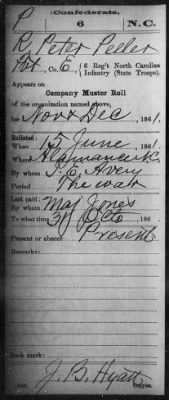 P
Confederate.
6 N.C.
R. Peter Peeler
Pvt, Co. E, 6 Reg't North Carolina Infantry (State Troops).
Appears on
Company Muster Roll
of the organization named above,
for Nov & Dec, 1861.
Enlisted:
When 15 June, 1861.
Where Alamance Co.
By whom I. E. Avery
Period The war
Last paid:
By whom Maj Jones
To what time 30 Octo, 186
Present or absent Present
Remarks:
Book mark:
J. B. Hyatt
Copyist.